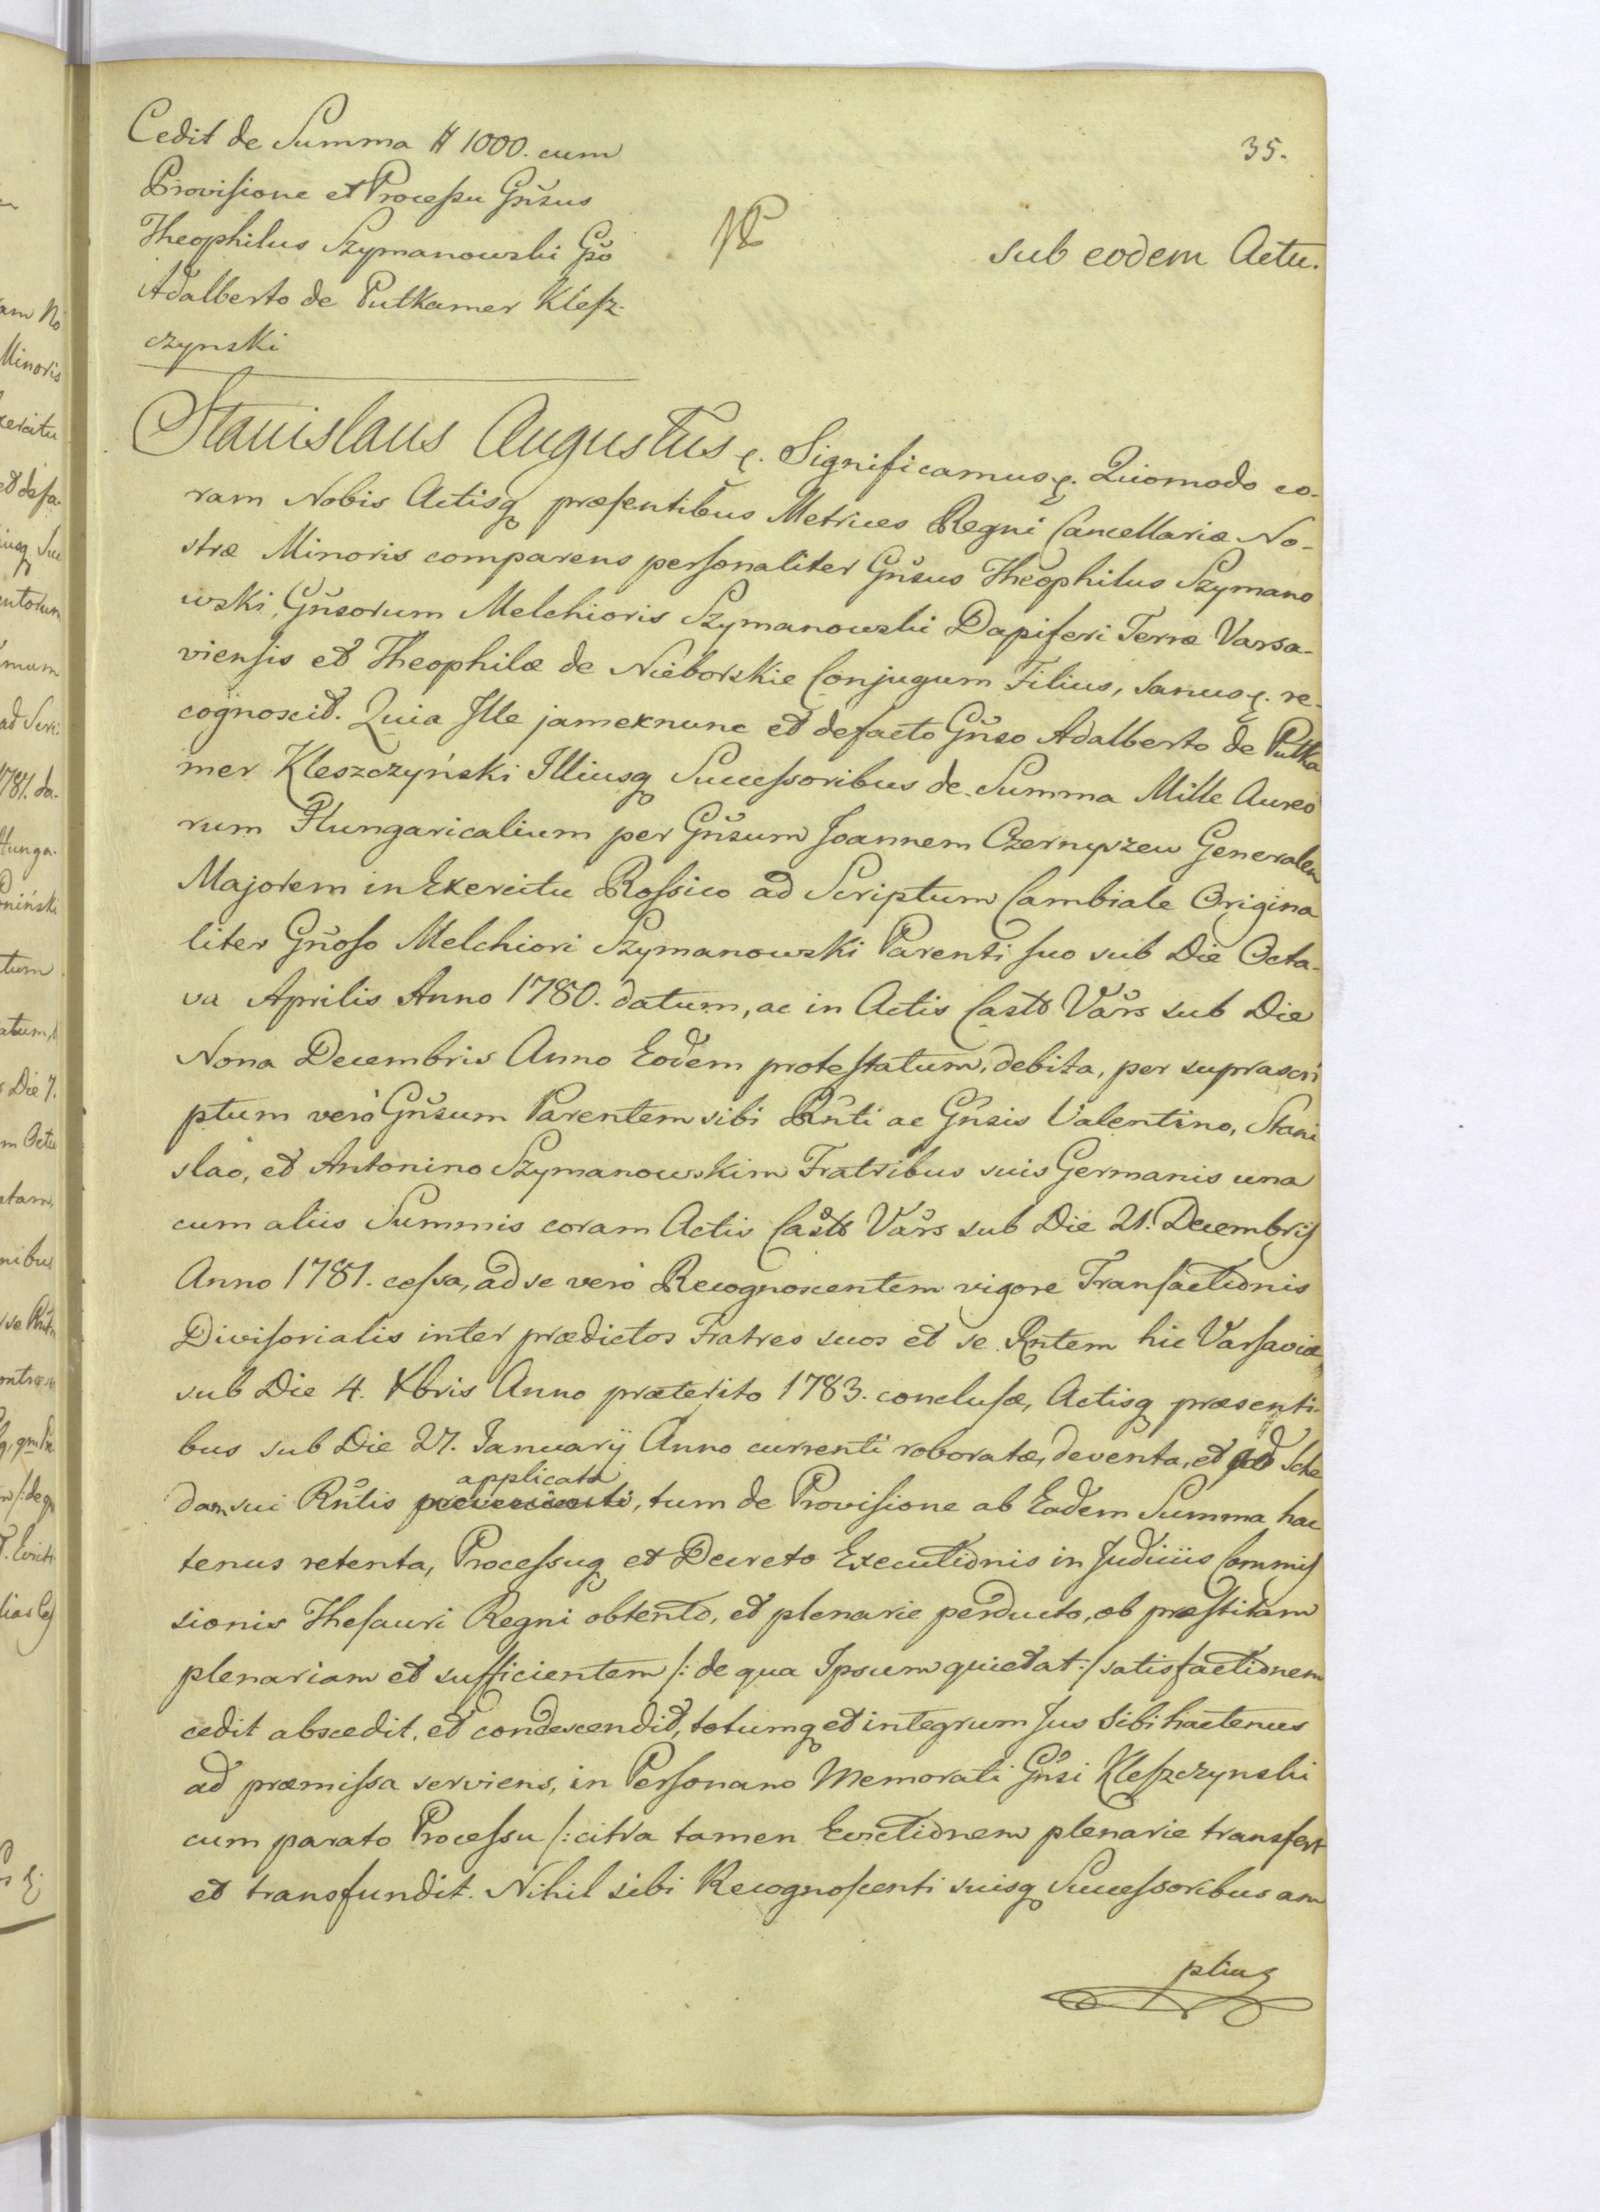 35.
Cedit de Summa # 1000. cum
Provisione et Processu Gnsus
Theophilus Szymanowski Gso
Adalberto de Putkamer Klesz-
czynski
sub eodem Actu.
Stanislaus Augustus &. Significamus &. Quomodo co-
ram Nobis Actisq præsentibus Metrices Regni Cancellariæ No-
stræ Minoris comparens personaliter Gnsus Theophilus Szymano
wski, Gnsorum Melchioris Szymanowski Dapiferi Terræ Varsa-
viensis et Theophilæ de Nieborskie Conjugum Filius, sanus &. re-
cognoscit. Quia Ille jamexnunc et defacto Gnso Adalberto de Putka
mer Kleszczyński Illiusq Successoribus de Summa Mille Aureo
rum Hungaricalium per Gnsum Joannem Czernyszew Generalem
Majorem in Exercitu Rossico ad Scriptum Cambiale Origina
liter Gnoso Melchiori Szymanowski Parenti suo sub Die Octa-
va Aprilis Anno 1780. datum, ac in Actis Castr Vars sub Die
Nona Decembris Anno Eodem protestatum, debita, per suprascri
ptum verò Gnsum Parentem sibi Rnti ac Gnsis Valentino, Stani
slao, et Antonino Szymanowskim Fratribus suis Germanis una
cum aliis Summis coram Actis Castr Vars sub Die 21. Decembris
Anno 1781. cessa, ad se verò Recognoscentem vigore Transactionis
Divisorialis inter prædictos Fratres suos et se Rntem hic Varsaviæ
sub Die 4. Xbris Anno præterito 1783. conclusæ, Actisq præsenti-
bus sub Die 27. Januarij Anno currenti roboratæ, deventa, et ad Sche
dam sui Rntis applicata, tum de Provisione ab Eadem Summa hac
tenus retenta, Processuq et Decreto Executionis in Judiciis Commis
sionis Thesauri Regni obtento, et plenarie perducto, ob præstitam
plenariam et sufficientem /: de qua Ipsum quietat :/ satisfactionem
cedit abscedit, et condescendit, totumq et integrum Jus sibi hactenus
ad præmissa serviens, in Personam Memorati Gnsi Kleszczynski
cum parato Processu /: citra tamen Evictionem plenarie transfert
et transfundit. Nihil sibi Recognoscenti suisq Successoribus am
plius